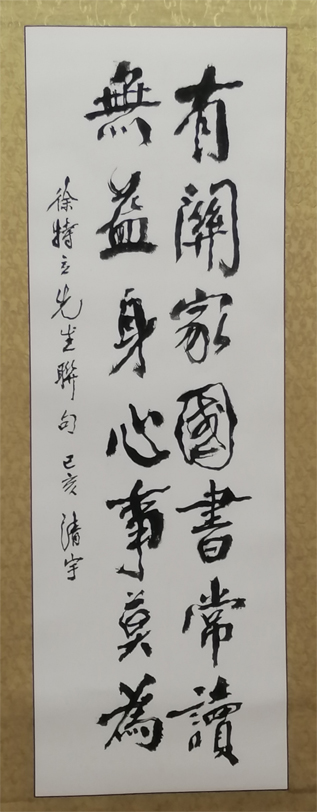 有關家國書常讀
無益身心事莫為
徐特立先生聯句 己亥 清宇